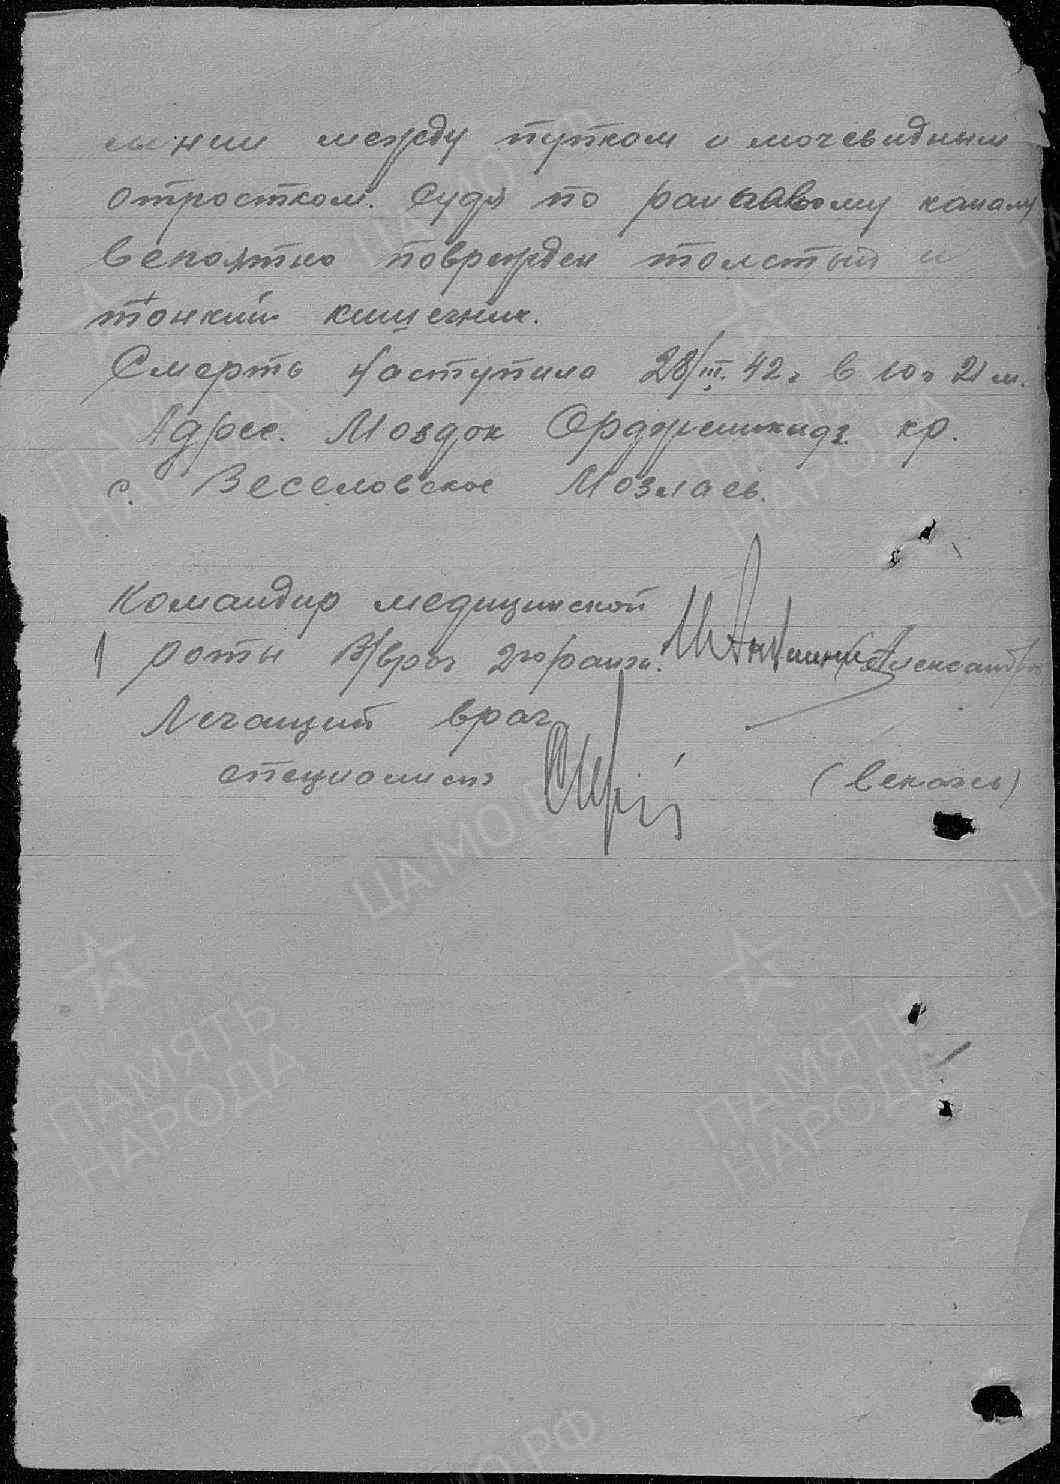 линии между пупком и мочевидным
отростком. Судя по раневому каналу
вероятно поврежден толстый и
тонкий кишечник.
Смерть наступила 28/III. 42 г в 10 ч 21 м.
Адрес. Моздок Орджоникидз. кр.
с. Веселовское
Командир медицинской
роты В/врач 2го ранга.
Лечащий врач
специалист
ПАМЯТЬ НАРОДА
ЦАМО РФ